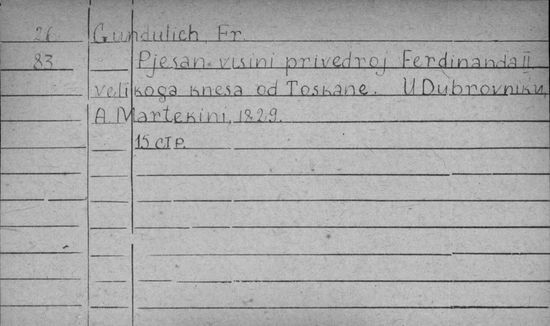 26 Gundulich, Fr.
83 Pjesan visini privedroj Ferdinanda II
velikoga knesa od Toskane. U Dubrovniku,
A. Martekini, 1829.
15 стр.